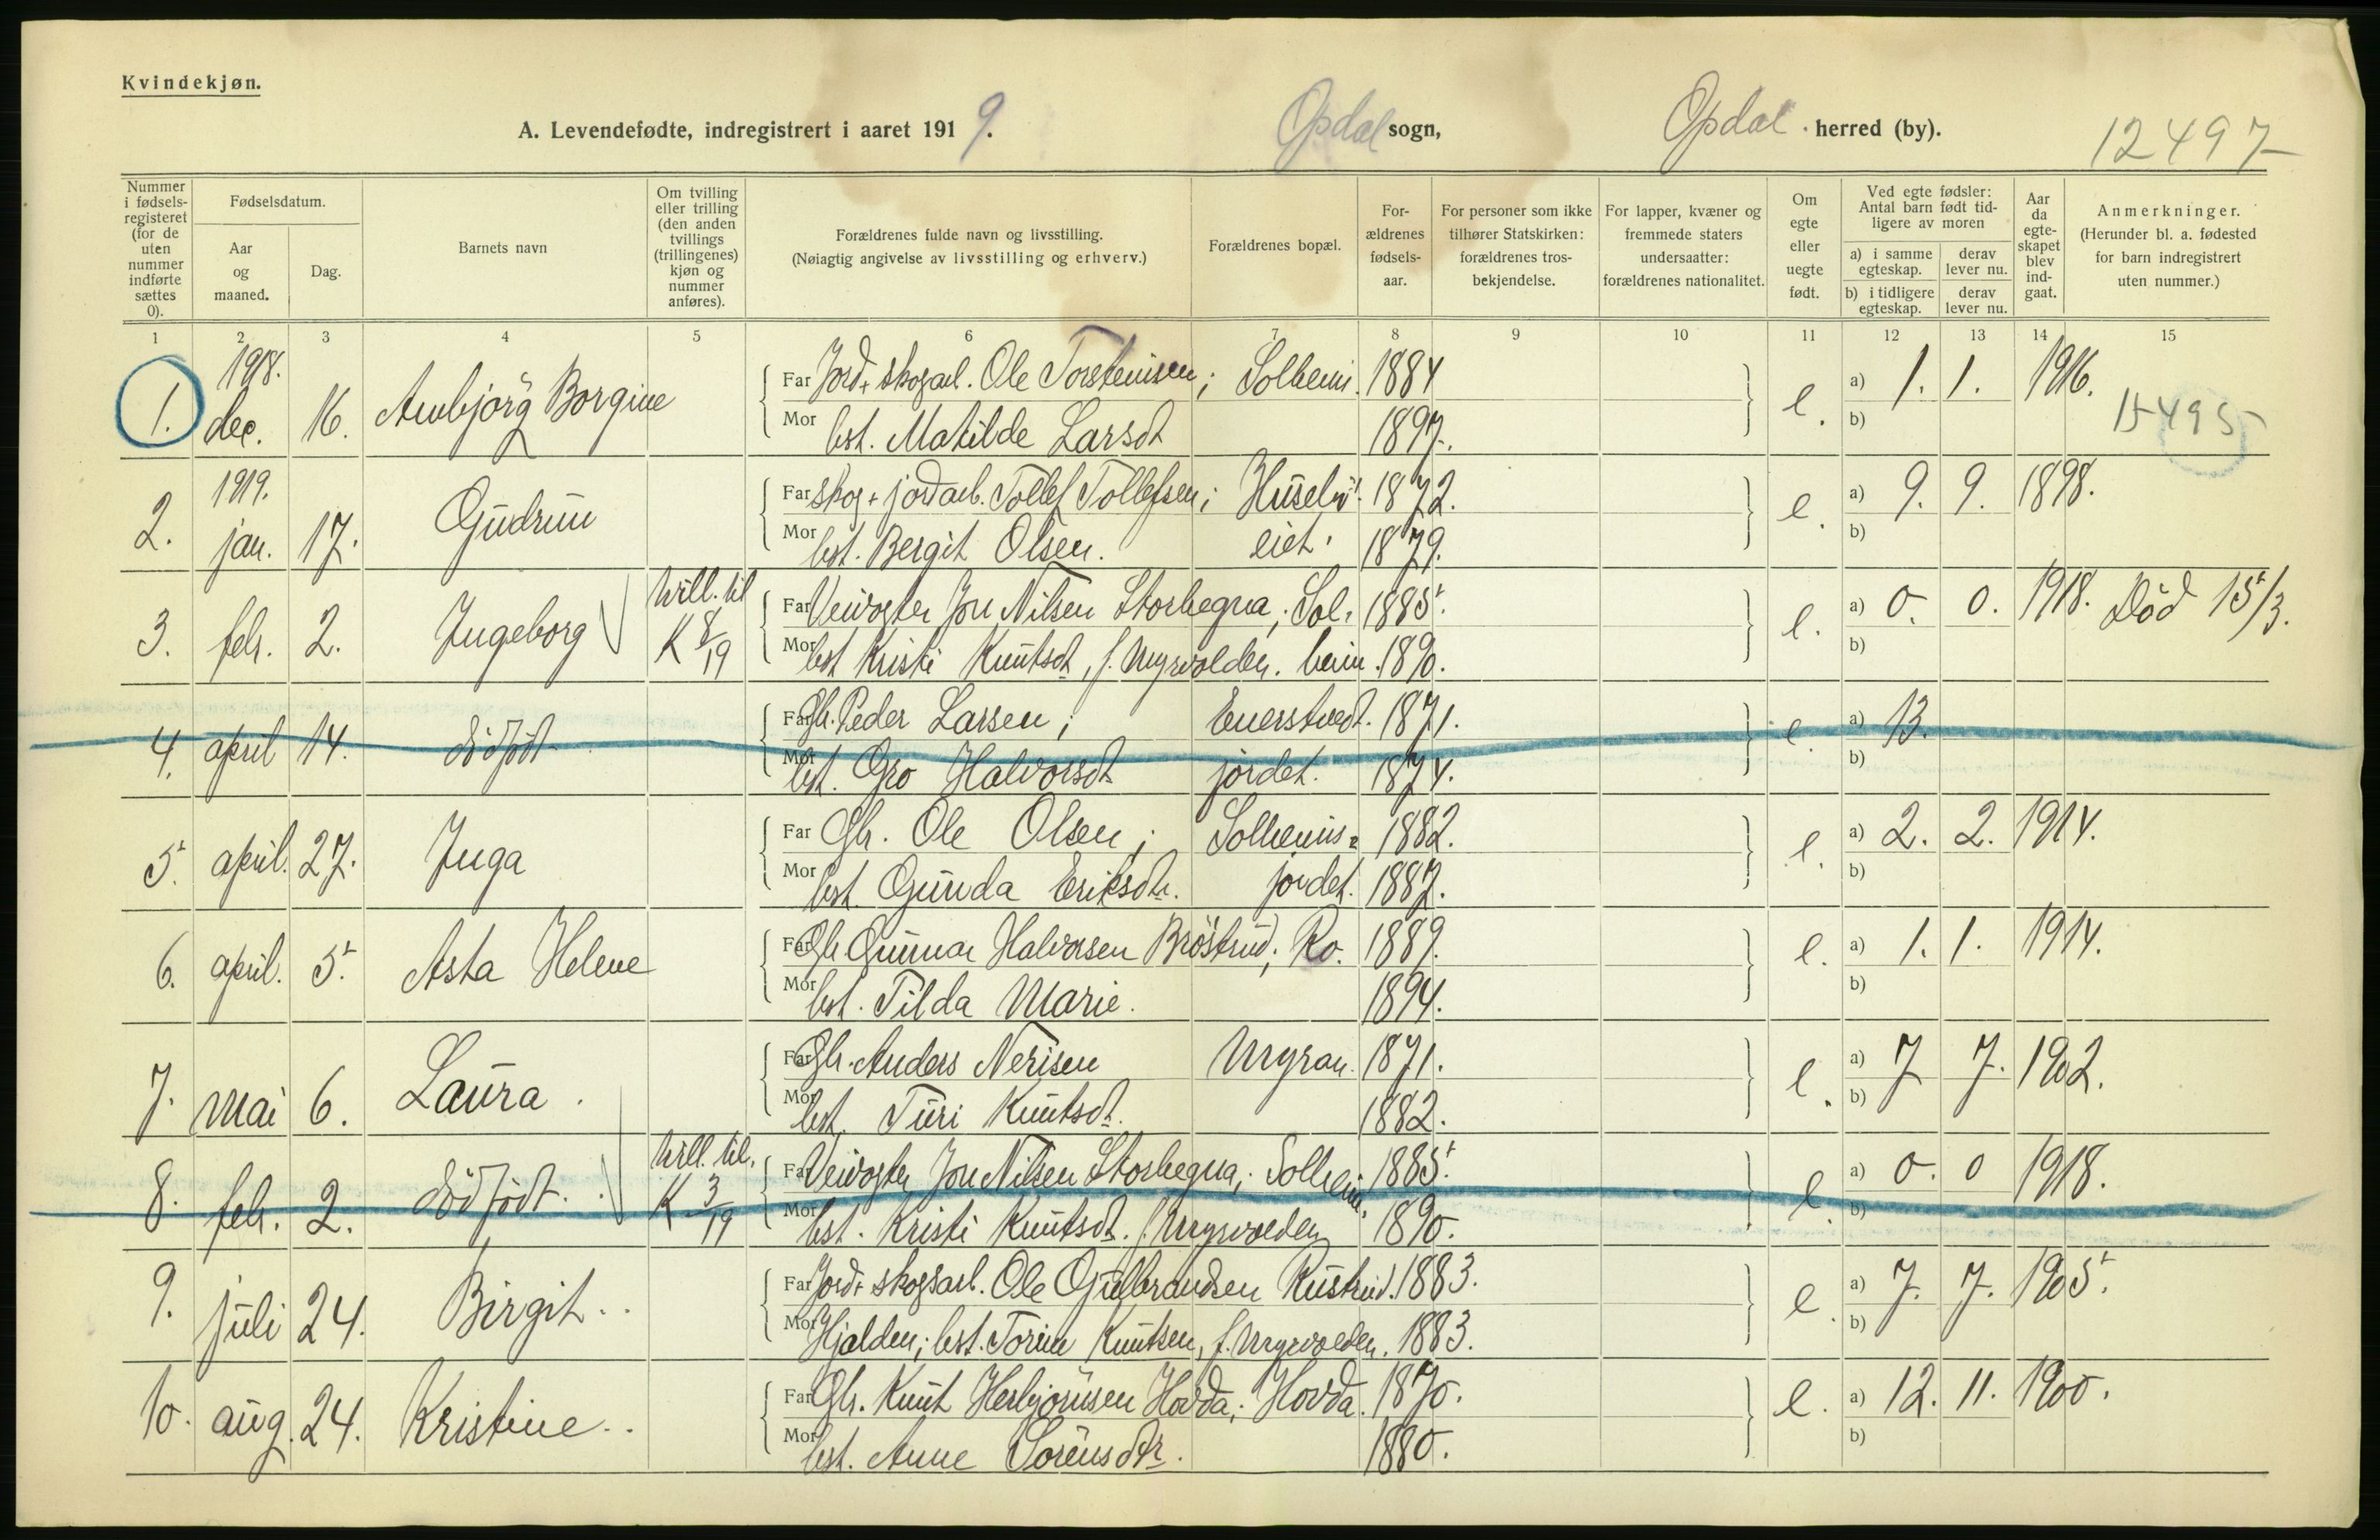 Kvindekjøn.
A. Levendefødte, indregistrert i aaret 1919. Opdal sogn, Opdal herred (by). 12497
Nummer i fødselsregisteret (for de uten nummer indførte sættes 0).
Fødselsdatum.
Aar og maaned.
Dag.
Barnets navn
Om tvilling eller trilling (den anden tvillings (trillingenes) kjøn og nummer anføres).
Forældrenes fulde navn og livsstilling.
(Nøiagtig angivelse av livsstilling og erhverv.)
Forældrenes bopæl.
Forældrenes fødselsaar.
For personer som ikke tilhører Statskirken: forældrenes trosbekjendelse.
For lapper, kvæner og fremmede staters undersaatter: forældrenes nationalitet.
Om egte eller uegte født.
Ved egte fødsler: Antal barn født tidligere av moren
a) i samme egteskap. derav lever nu.
b) i tidligere egteskap. derav lever nu.
Aar da egteskapet blev indgaat.
Anmerkninger.
(Herunder bl. a. fødested for barn indregistrert uten nummer.)
1 2 3 4 5 6 7 8 9 10 11 12 13 14 15
1. 1918. dec. 16. Ambjörg Borgine Far Jord+ skogarb. Ole Torsteinsen; Solheim. 1884 e. a) 1. 1. 1916.
Mor hst. Matilde Larsdt 1897. b) 15495
2. 1919. jan. 17. Gudrun Far skog+ jordarb. Tollef Tollefsen; Huseby- 1872. e. a) 9. 9. 1898.
Mor hst. Bergit Olsen. eiet. 1879. b)
3. febr. 2. Ingeborg tvill. til K 8/19 Far Veivogter Jon Nilsen Storhegna; Sol- 1885. e. a) 0. 0. 1918. Död 15/3.
Mor hst Kristi Knutsdt, f. Myrvolden. heim. 1890. b)
4. april 14. dödfödt Far Gbr. Peder Larsen; Enerstvedt- 1871. e. a) 13.
Mor hst. Gro Halvorsdt jordet. 1874. b)
5. april. 27. Inga Far Gbr. Ole Olsen; Solheims- 1882. e. a) 2. 2. 1914.
Mor hst. Gunda Eriksdtr. jordet. 1887. b)
6. april. 5. Asta Helene Far Gbr Gunnar Halvorsen Bröstrud; Ro. 1889. e. a) 1. 1. 1914.
Mor hst. Tilda Marie. 1894. b)
7. mai 6. Laura. Far Gbr. Anders Nerisen Myran. 1871. e. a) 7 7. 1902.
Mor hst. Turi Knutsdt. 1882. b)
8. febr. 2. dödfödt. tvill. til. K 3/19 Far Veivogter Jon Nilsen Storhegna; Solheim. 1885. e. a) 0. 0 1918.
Mor hst. Kristi Knutsdt. f. Myrvolden 1890. b)
9. juli 24. Birgit.. Far Jord+ skogsarb. Ole Gulbrandsen Rustrud. 1883. e. a) 7. 7. 1905.
Mor Hjalden; hst. Torine Knutsen, f. Myrvolden. 1883. b)
10. aug. 24. Kristine.. Far Gbr. Knut Herbjörnsen Hovda; Hovda. 1870. e. a) 12. 11. 1900.
Mor hst. Anne Sörensdtr. 1880. b)